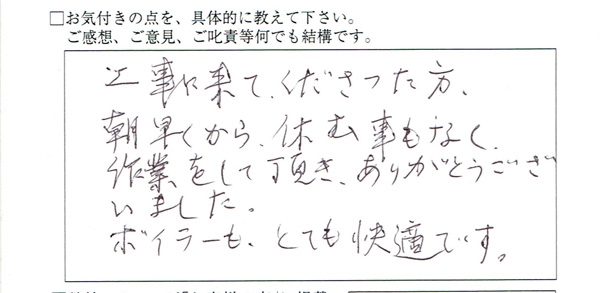 □お気付きの点を、具体的に教えて下さい。
ご感想、ご意見、ご叱責等何でも結構です。
工事に来て、くださった方、
朝早くから、休む事もなく、
作業をして頂き、ありがとうござ
いました。
ボイラーも、とても快適です。